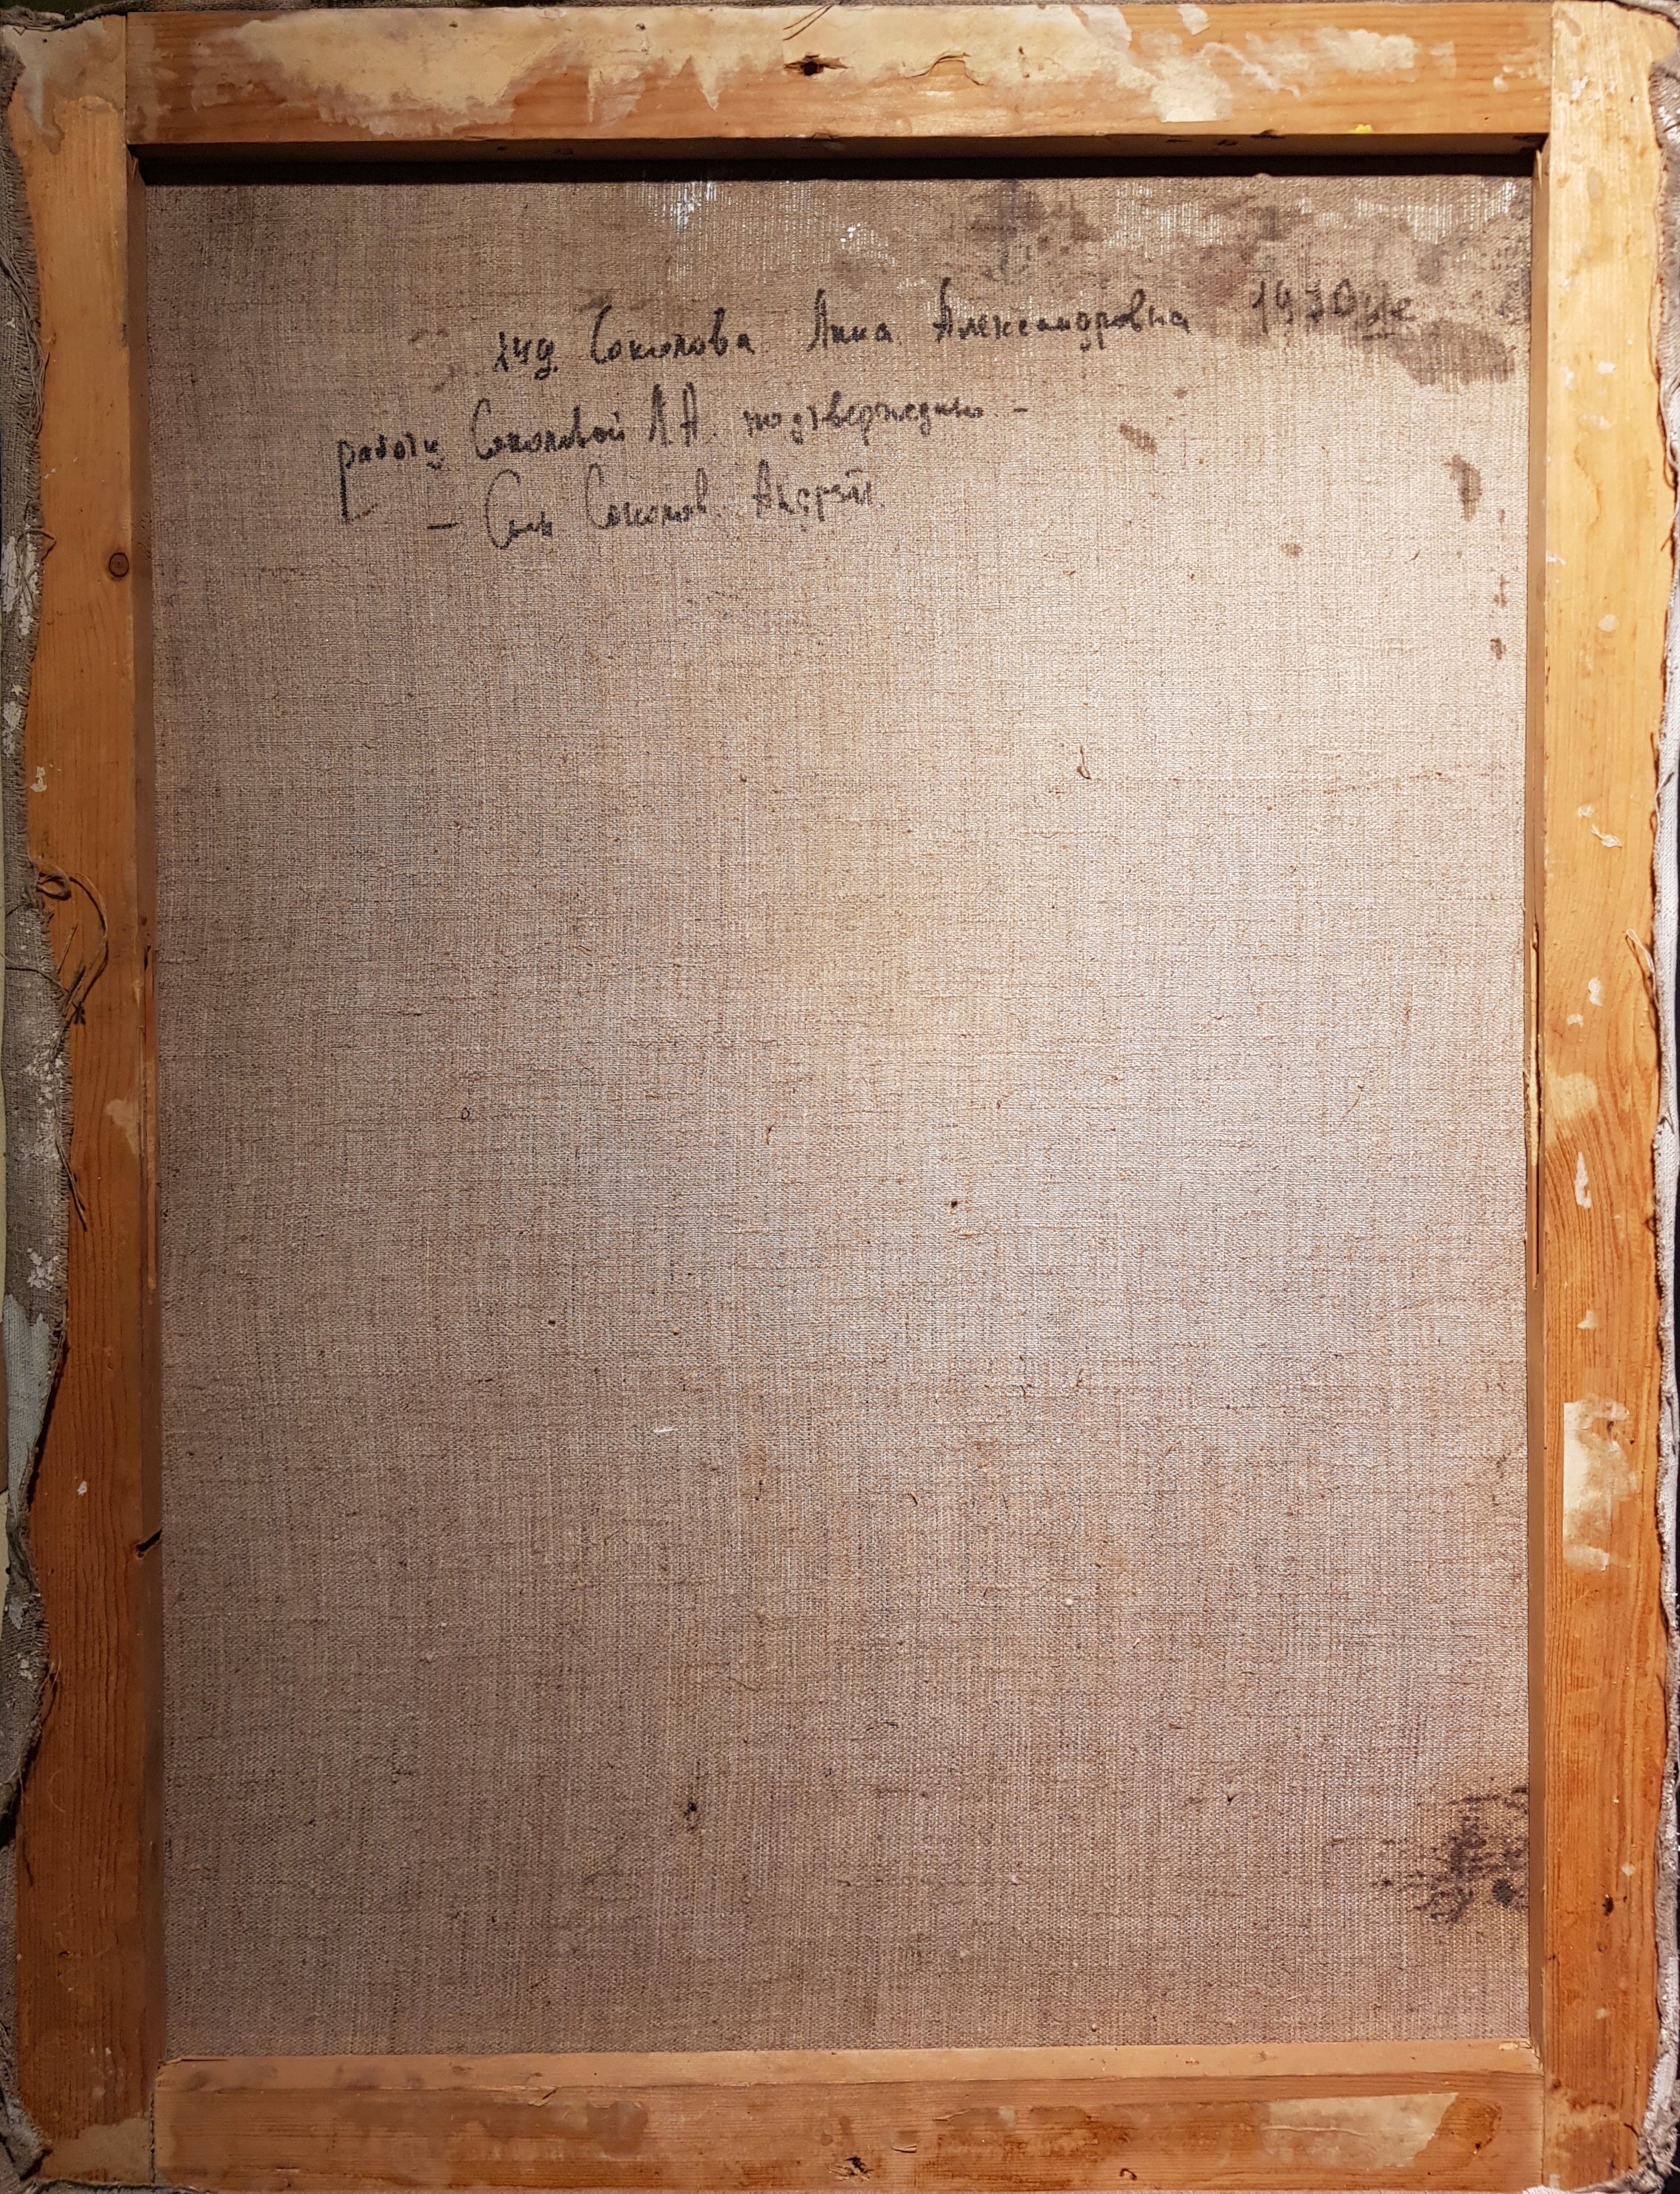 худ. Соколова Анна Александровна 1970ые
работу Соколовой А.А. подтверждаю -
- Сын Соколов Андрей.